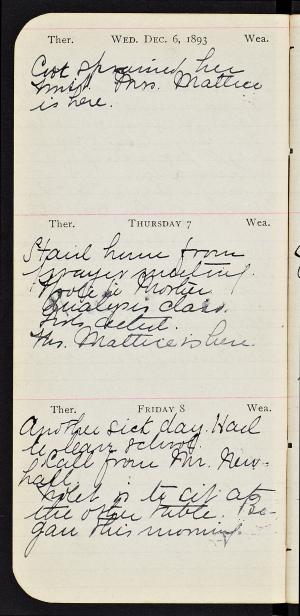 Ther. WED. DEC. 6, 1893 Wea.
sprained her
Mrs. Mattice
is here.
Ther. THURSDAY 7 Wea.
Staid home from
prayer meeting.
Wrote to Mother
Analysis class.
Mrs. Mattice is here.
Ther. FRIDAY 8 Wea.
Another sick day. Had
to leave school.
Call from Mr. New-
hall.
is to sit at
the other table. Be-
gan this morning.